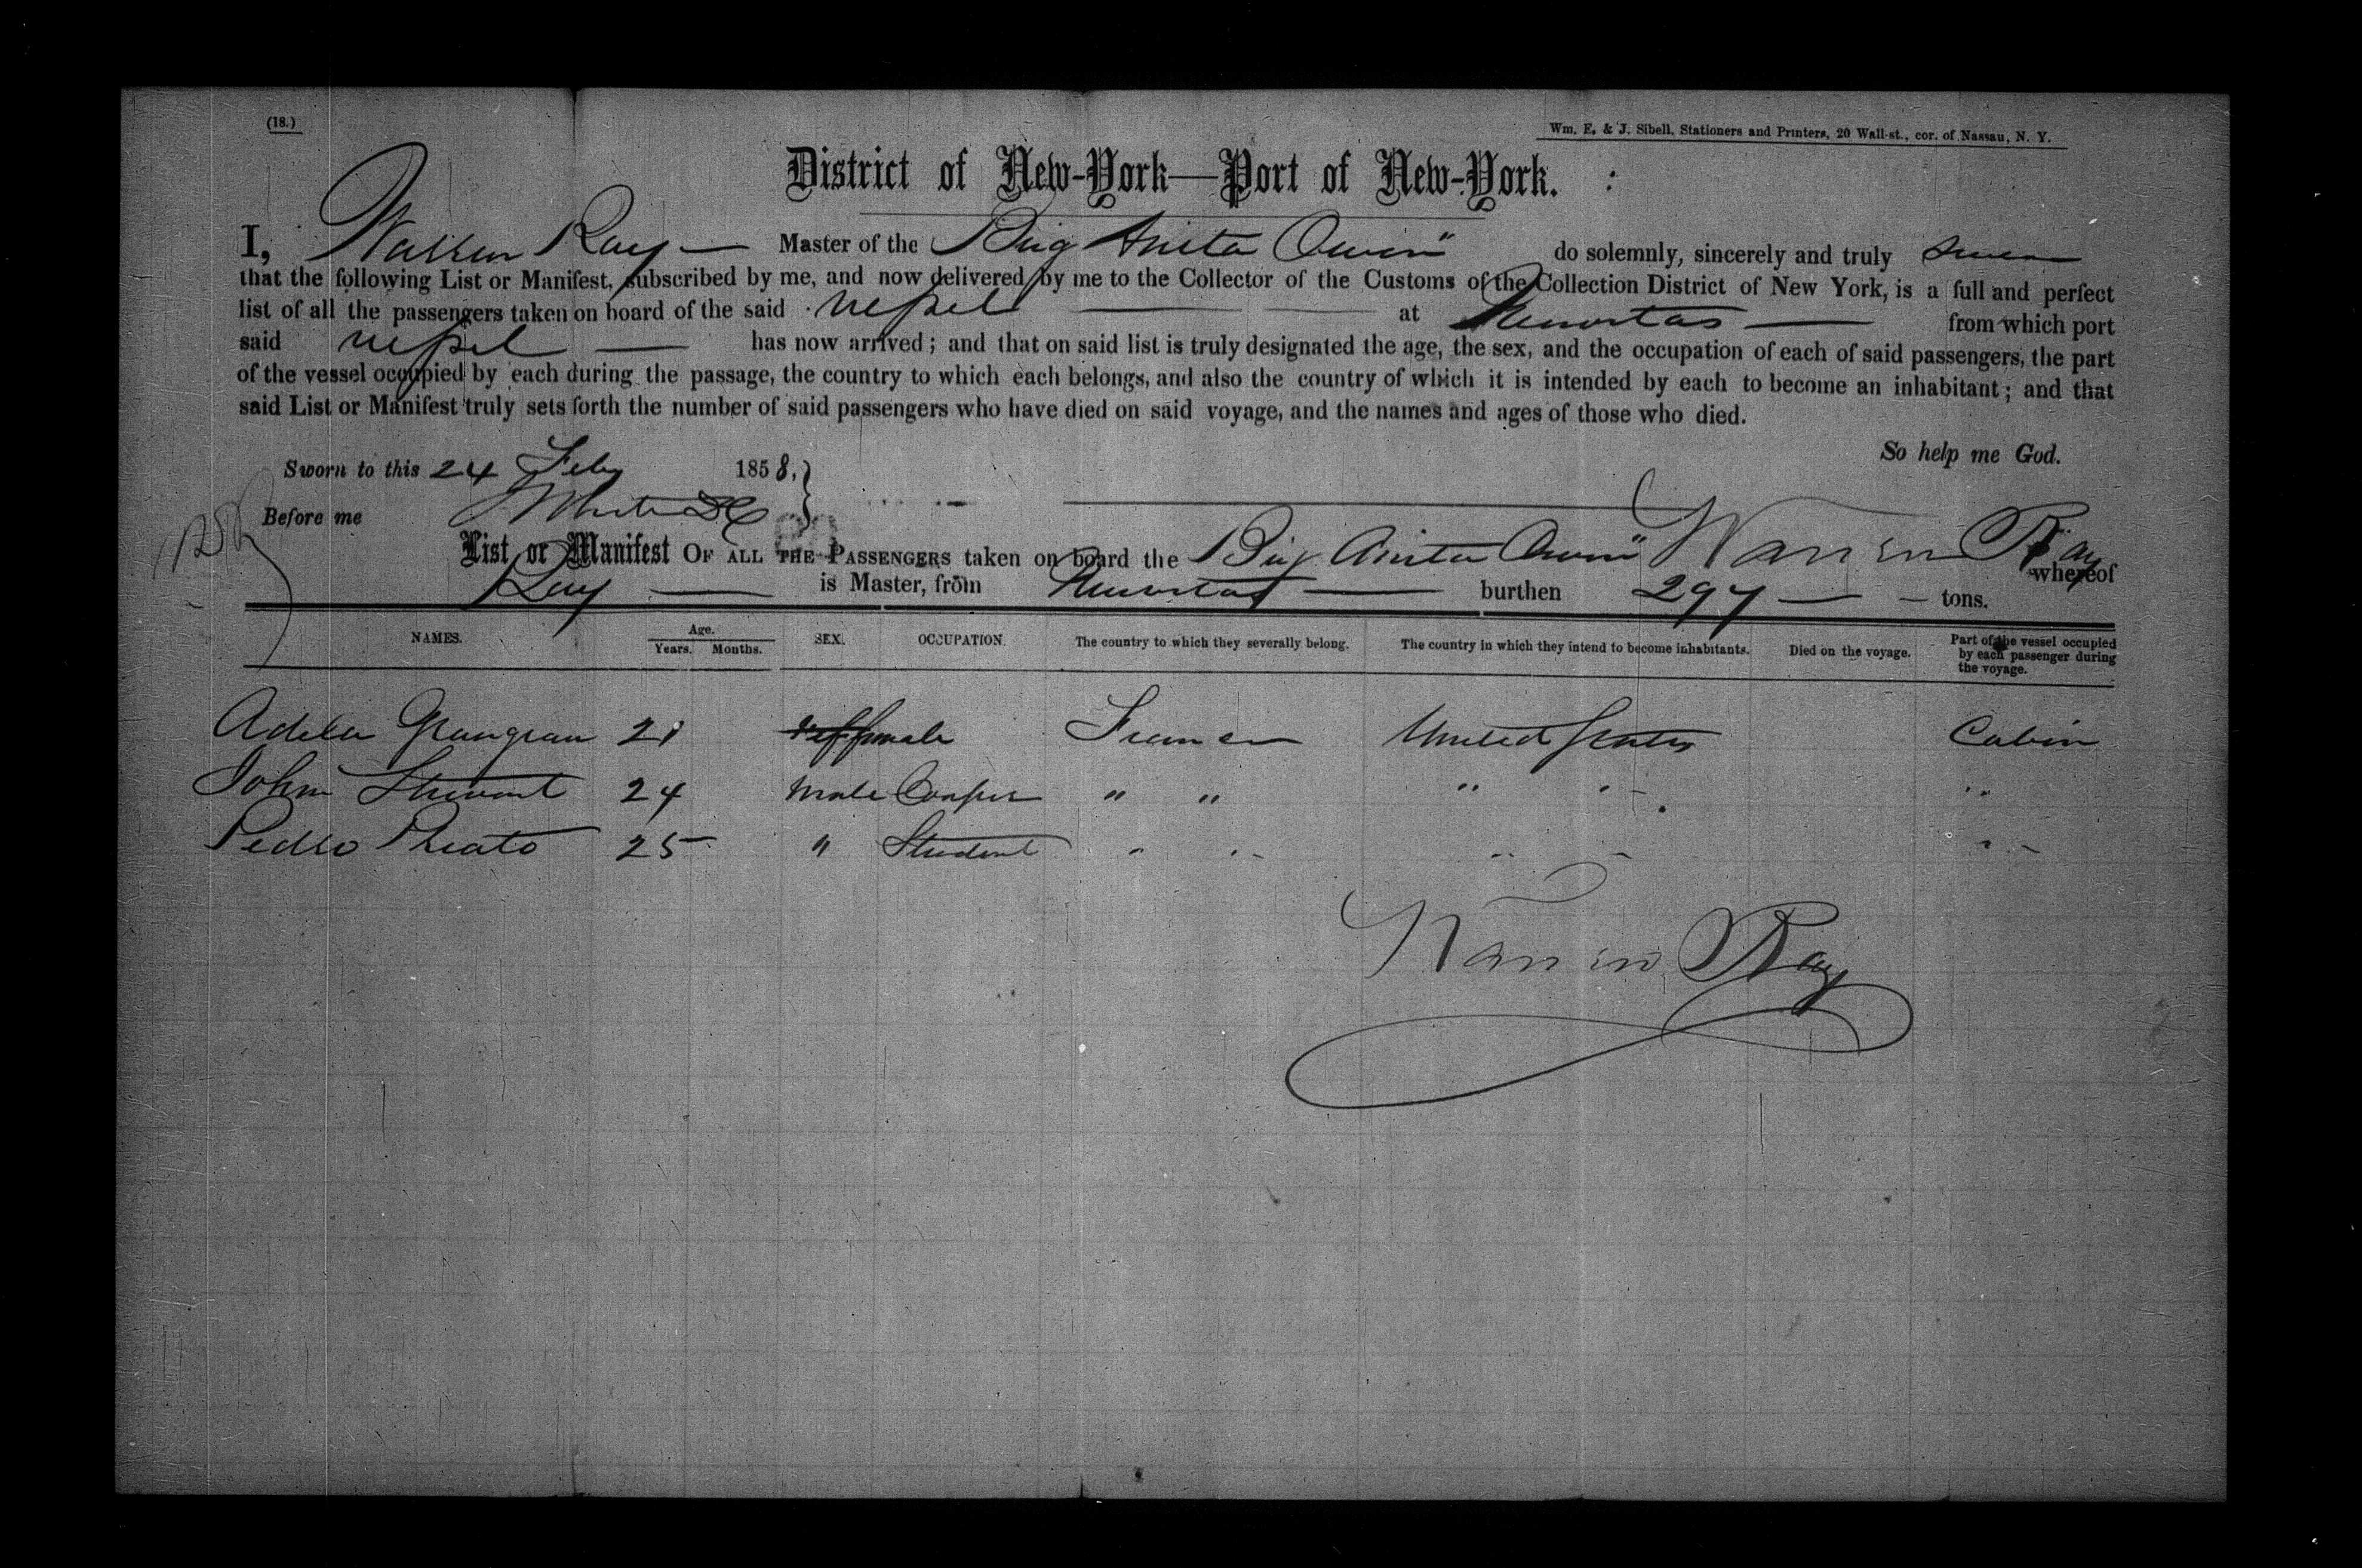 (18.)
Wm. E. & J. Sibell, Stationers and Printers, 20 Wall-st., cor. of Nassau, N. Y.
District of New-York—Port of New-York.
I, Warren Ray — Master of the Brig Anita Owen" do solemnly, sincerely and truly swear
that the following List or Manifest, subscribed by me, and now delivered by me to the Collector of the Customs of the Collection District of New York, is a full and perfect
list of all the passengers taken on board of the said vessel — at from which port
said vessel — has now arrived; and that on said list is truly designated the age, the sex, and the occupation of each of said passengers, the part
of the vessel occupied by each during the passage, the country to which each belongs, and also the country of which it is intended by each to become an inhabitant; and that
said List or Manifest truly sets forth the number of said passengers who have died on said voyage, and the names and ages of those who died.
So help me God.
Sworn to this 24 Feby 1858,
Before me
Warren Ray
List or Manifest OF ALL THE PASSENGERS taken on board the Brig Anita Owen" whereof
Ray — is Master, from burthen 297 — tons.
NAMES. Age. Years. Months. SEX. OCCUPATION. The country to which they severally belong. The country in which they intend to become inhabitants. Died on the voyage. Part of the vessel occupied by each passenger during the voyage.
Adela 21 female United States Cabin
John Stewart 24 Male Cooper " " " " "
Pedro 25 " Student " " " " "
Warren Ray